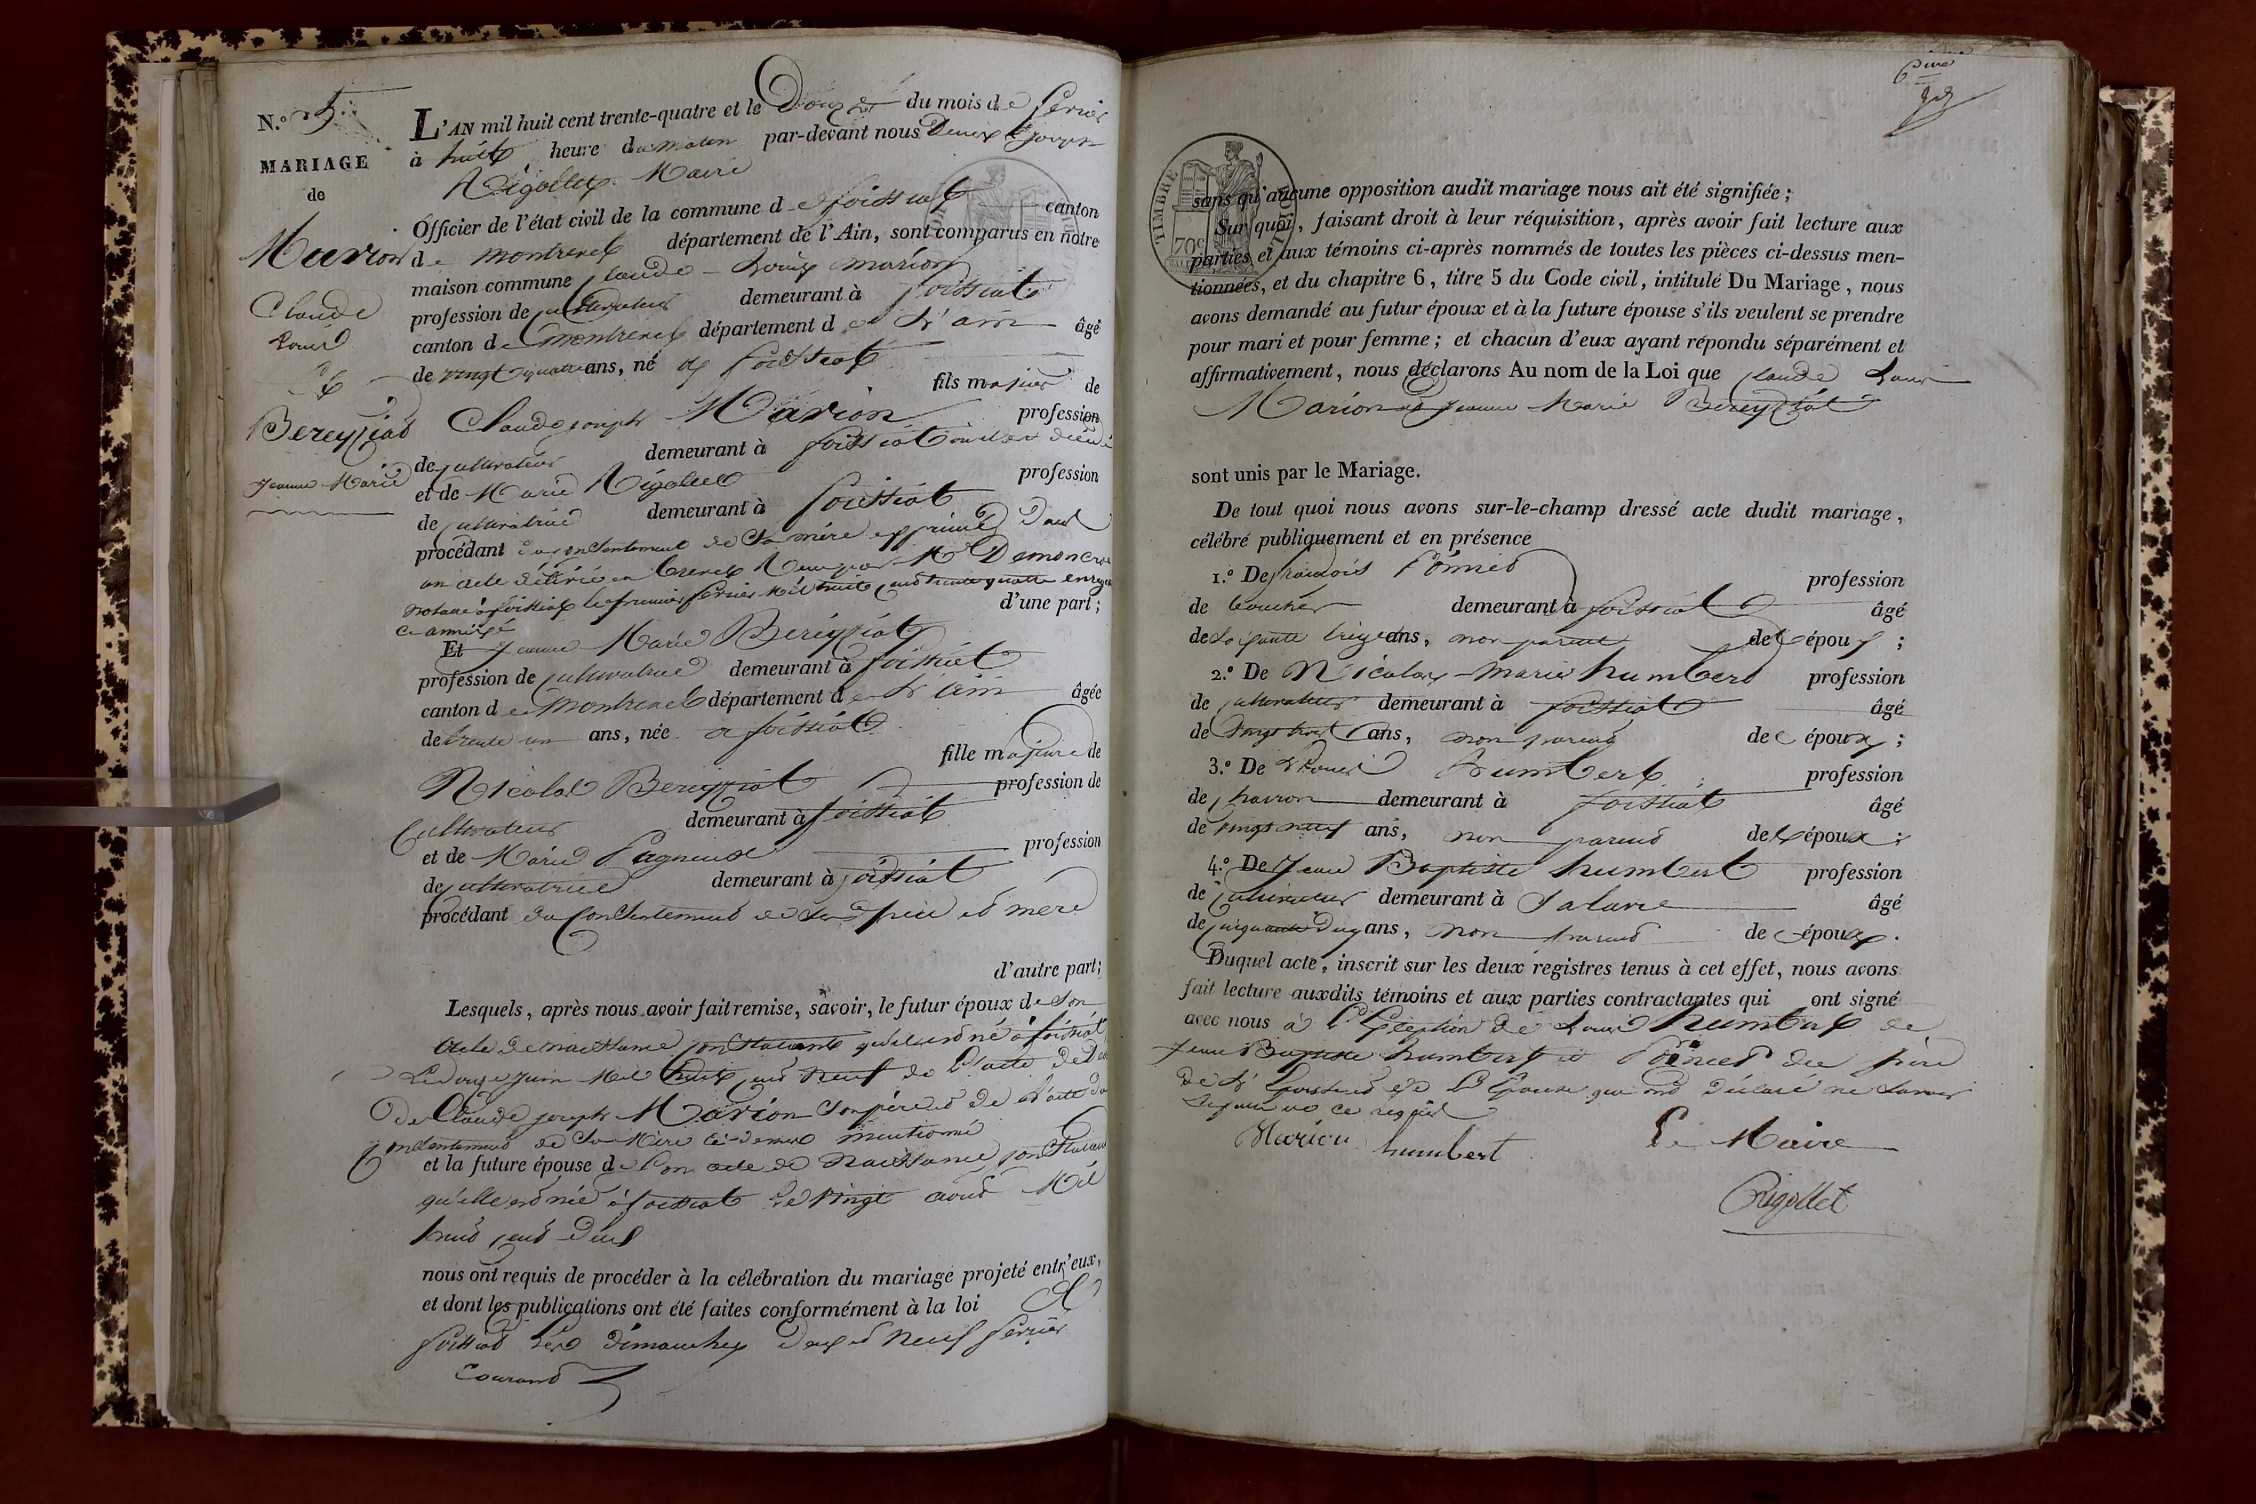 N.º 5
MARIAGE
de
Marion
Claude
Louis
Et
Bereyziat
Jeanne Marie
L'AN mil huit cent trente-quatre et le Douze du mois de février
à huit heure du matin par-devant nous Denis Joseph
Rigollet Maire
Officier de l'état civil de la commune de foissiat canton
de montrevel département de l'Ain, sont comparus en notre
maison commune Claude Louis Marion
profession de cultivateur demeurant à foissiat
canton de montrevel département de L'ain âgé
de vingt quatre ans, né à foissiat
fils majeur de
Claude joseph Marion profession
de cultivateur demeurant à foissiat où il est décédé
et de Marie Rigollet profession
de cultivatrice demeurant à foissiat
procédant du consentement de sa mère exprimé dans
un acte délivré en brevet reçu par Me
notaire à foissiat le premier février mil huit cent trente quatre
ci annexé d'une part;
Et Jeanne Marie Bereyziat
profession de cultivatrice demeurant à foissiat
canton de montrevel département de L'ain âgée
de trente un ans, née à foissiat
fille majeure de
Nicolas Bereyziat profession de
Cultivateur demeurant à foissiat
et de Marie Pagneux profession
de cultivatrice demeurant à foissiat
procédant du consentement de ses père et mère
d'autre part;
Lesquels, après nous avoir fait remise, savoir, le futur époux de son
acte de naissance constatant qu'il est né à foissiat
Le douze juin Mil huit cent neuf de L'acte de
De Claude joseph Marion son père et de L'acte du
consentement de sa Mère ci-dessus mentionné
et la future épouse de son acte de naissance constatant
qu'elle est née à foissiat Le vingt août Mil
huit cent deux
nous ont requis de procéder à la célébration du mariage projeté entr'eux,
et dont les publications ont été faites conformément à la loi à
foissiat les dimanches deux et neuf février
courant
6me
TIMBRE ROYAL
70c
sans qu'aucune opposition audit mariage nous ait été signifiée;
Sur quoi, faisant droit à leur réquisition, après avoir fait lecture aux
parties et aux témoins ci-après nommés de toutes les pièces ci-dessus men-
tionnées, et du chapitre 6, titre 5 du Code civil, intitulé Du Mariage, nous
avons demandé au futur époux et à la future épouse s'ils veulent se prendre
pour mari et pour femme; et chacun d'eux ayant répondu séparément et
affirmativement, nous déclarons Au nom de la Loi que Claude Louis
Marion et Jeanne Marie Bereyziat
sont unis par le Mariage.
De tout quoi nous avons sur-le-champ dressé acte dudit mariage,
célébré publiquement et en présence
1.º De françois profession
de boucher demeurant à foissiat âgé
de soixante treize ans, non parent des époux;
2.º De Nicolas Marie humbert profession
de cultivateur demeurant à foissiat âgé
de vingt trois ans, non parent des époux;
3.º De Louis humbert profession
de charron demeurant à foissiat âgé
de vingt neuf ans, non parent des époux;
4.º De Jean Baptiste humbert profession
de cultivateur demeurant à Salavre âgé
de cinquante ans, non parent des époux.
Duquel acte, inscrit sur les deux registres tenus à cet effet, nous avons
fait lecture auxdits témoins et aux parties contractantes qui ont signé
avec nous à L'Exception de Louis humbert de
Jean Baptiste humbert de du père
de L'épouse et de L'épouse qui ont déclaré ne savoir
de ce requis
Marion humbert Le Maire
Rigollet